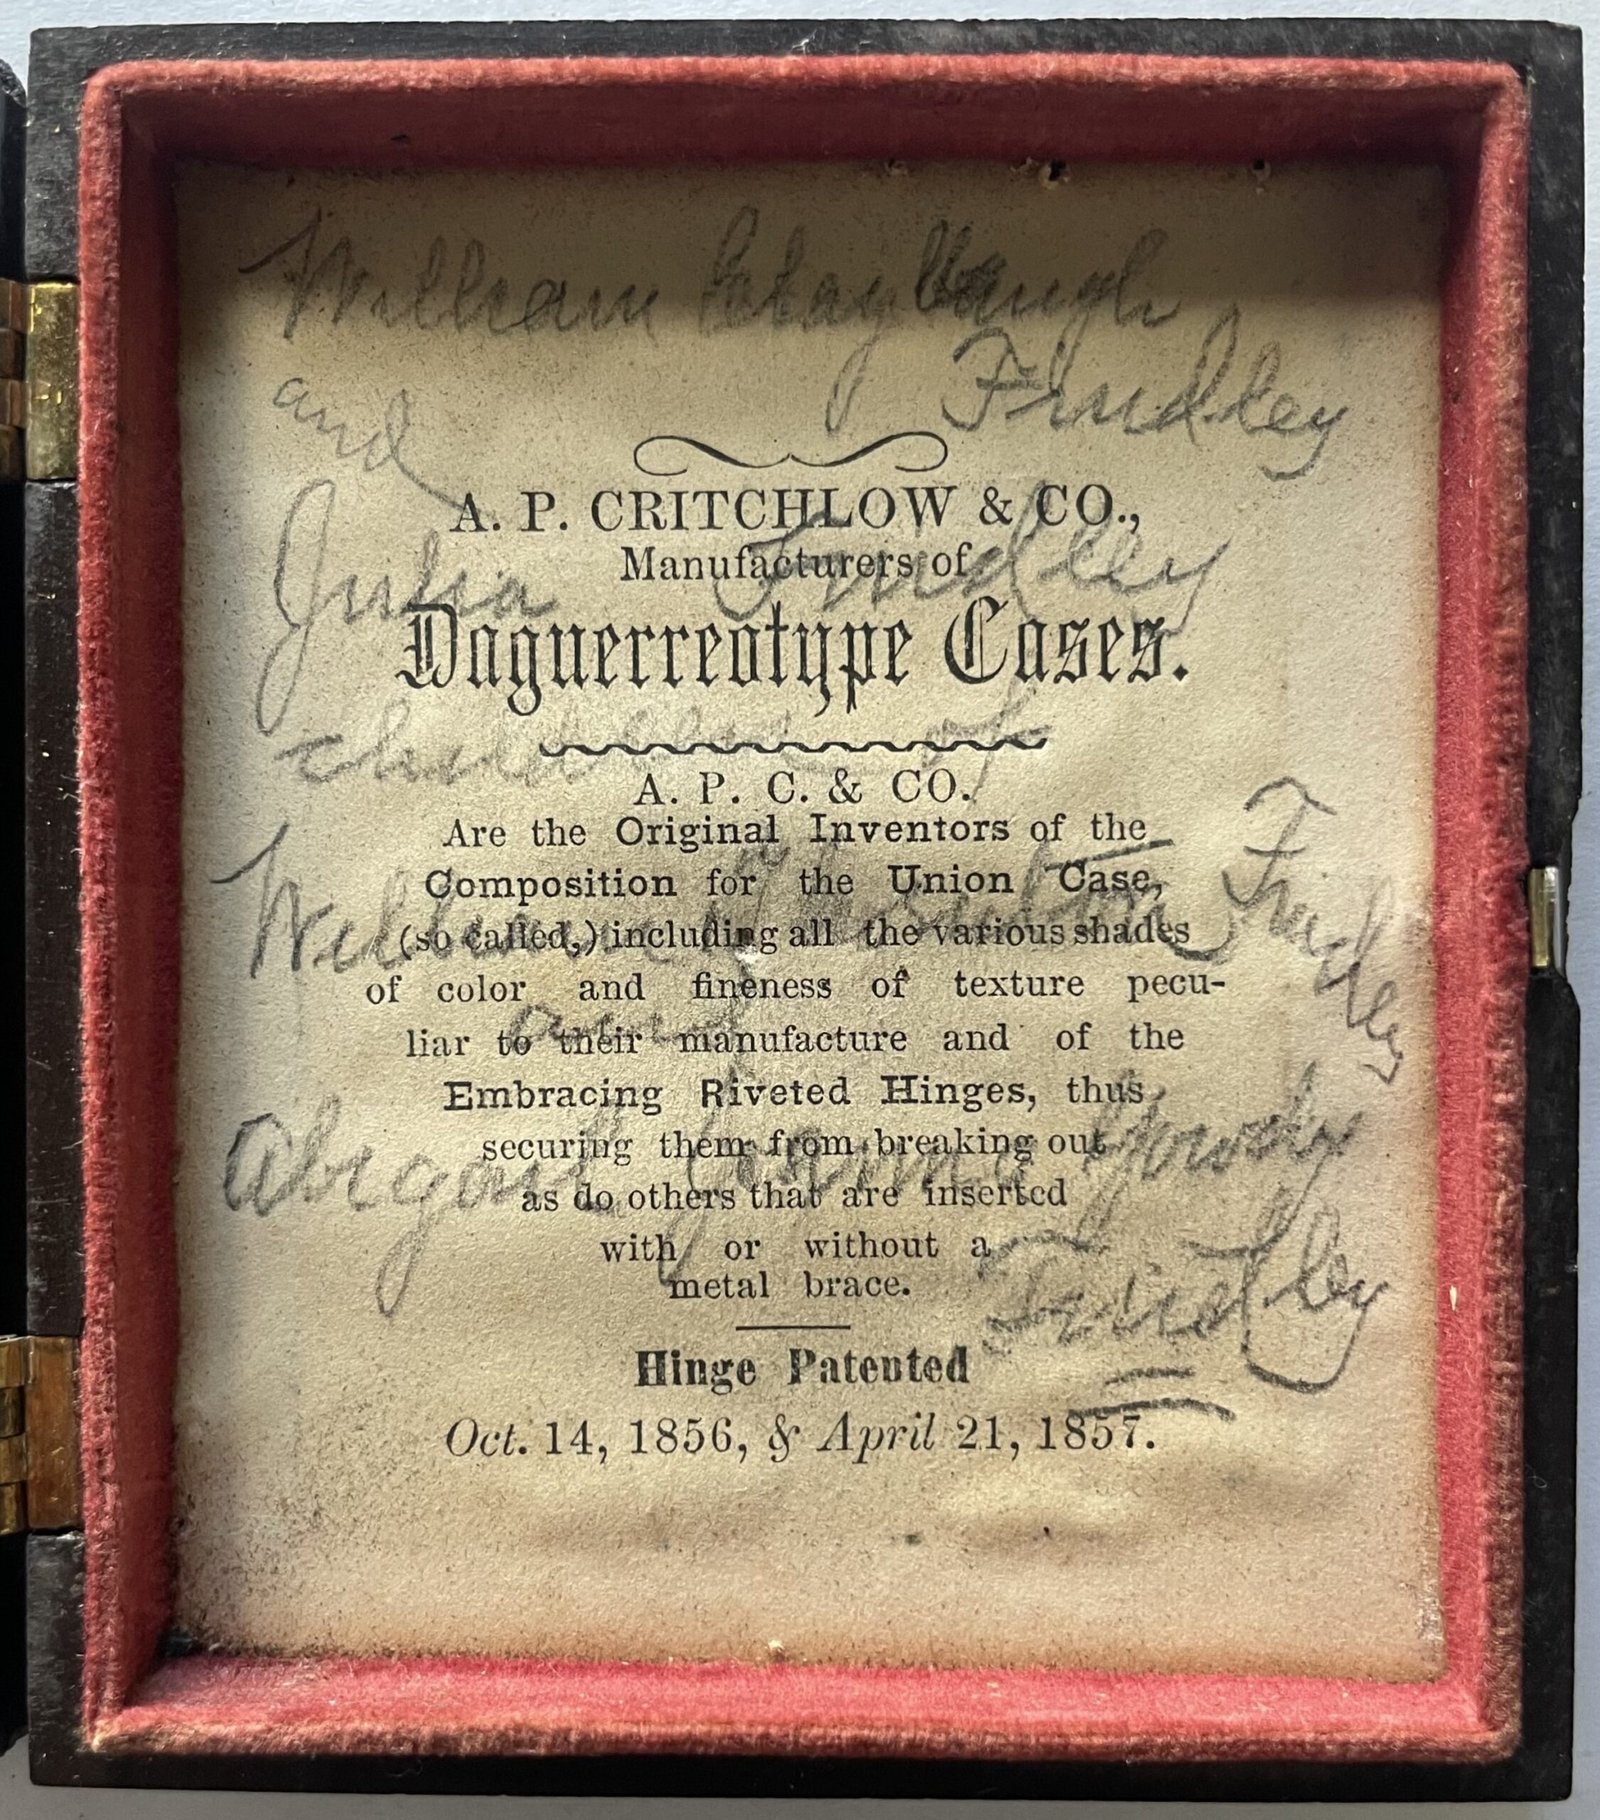 William Claybaugh
Findley
and
A. P. CRITCHLOW & CO.,
Julia Findley
Manufacturers of
Daguerreotype Cases.
children of
A. P. C. & CO.
Are the Original Inventors of the
Composition for the Union Case,
William Findley
(so called,) including all the various shades
of color and fineness of texture pecu-
and
liar to their manufacture and of the
Embracing Riveted Hinges, thus
securing them from breaking out
Abigail
as do others that are inserted
with or without a
Findley
metal brace.
Hinge Patented
Oct. 14, 1856, & April 21, 1857.